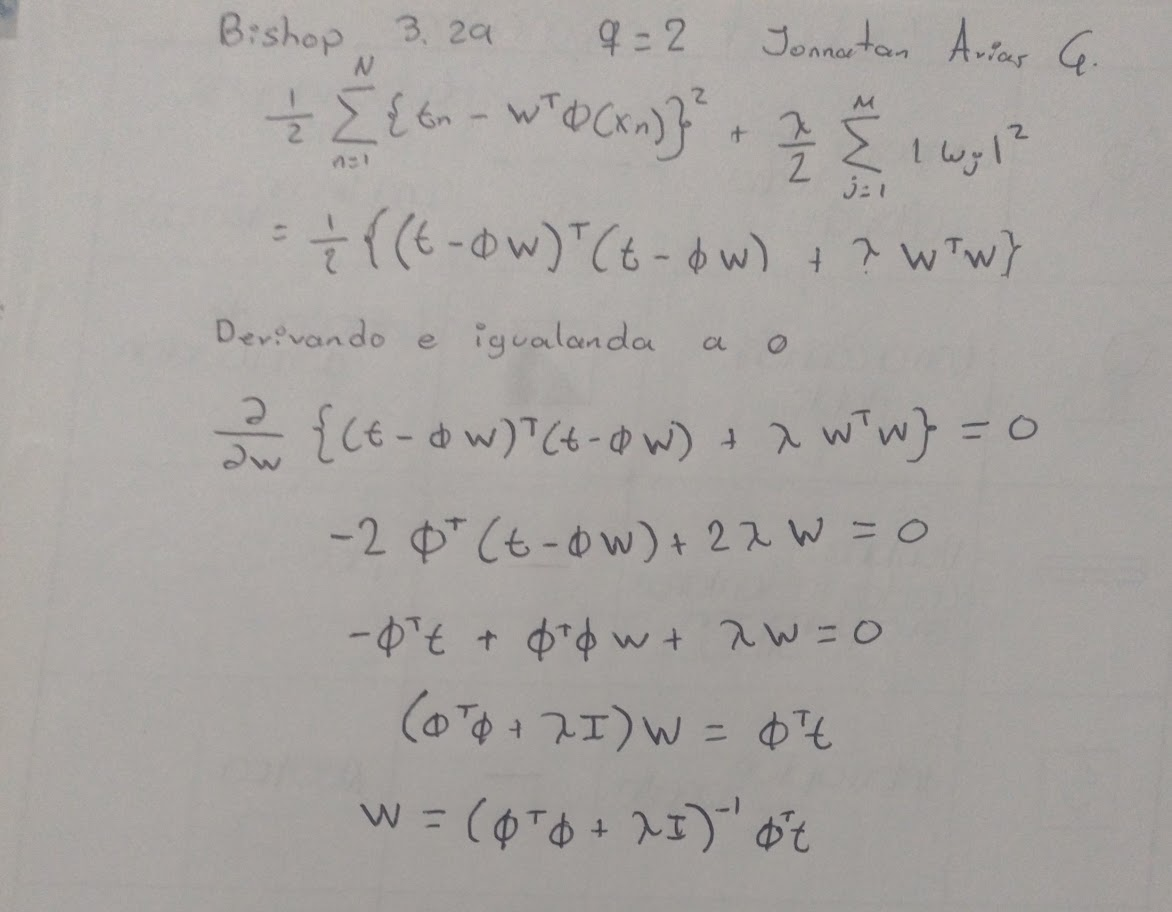 Bishop 3.29 q = 2 Jonnatan Arias G.
1/2 ∑_{n=1}^{N} {tn - w^T Φ(xn)}^2 + λ/2 ∑_{j=1}^{M} |wj|^2
= 1/2 {(t - Φw)^T (t - Φw) + λ w^T w}
Derivando e igualanda a 0
∂/∂w {(t - Φw)^T (t - Φw) + λ w^T w} = 0
-2 Φ^T (t - Φw) + 2λ w = 0
-Φ^T t + Φ^T Φ w + λ w = 0
(Φ^T Φ + λI) w = Φ^T t
w = (Φ^T Φ + λI)^{-1} Φ^T t